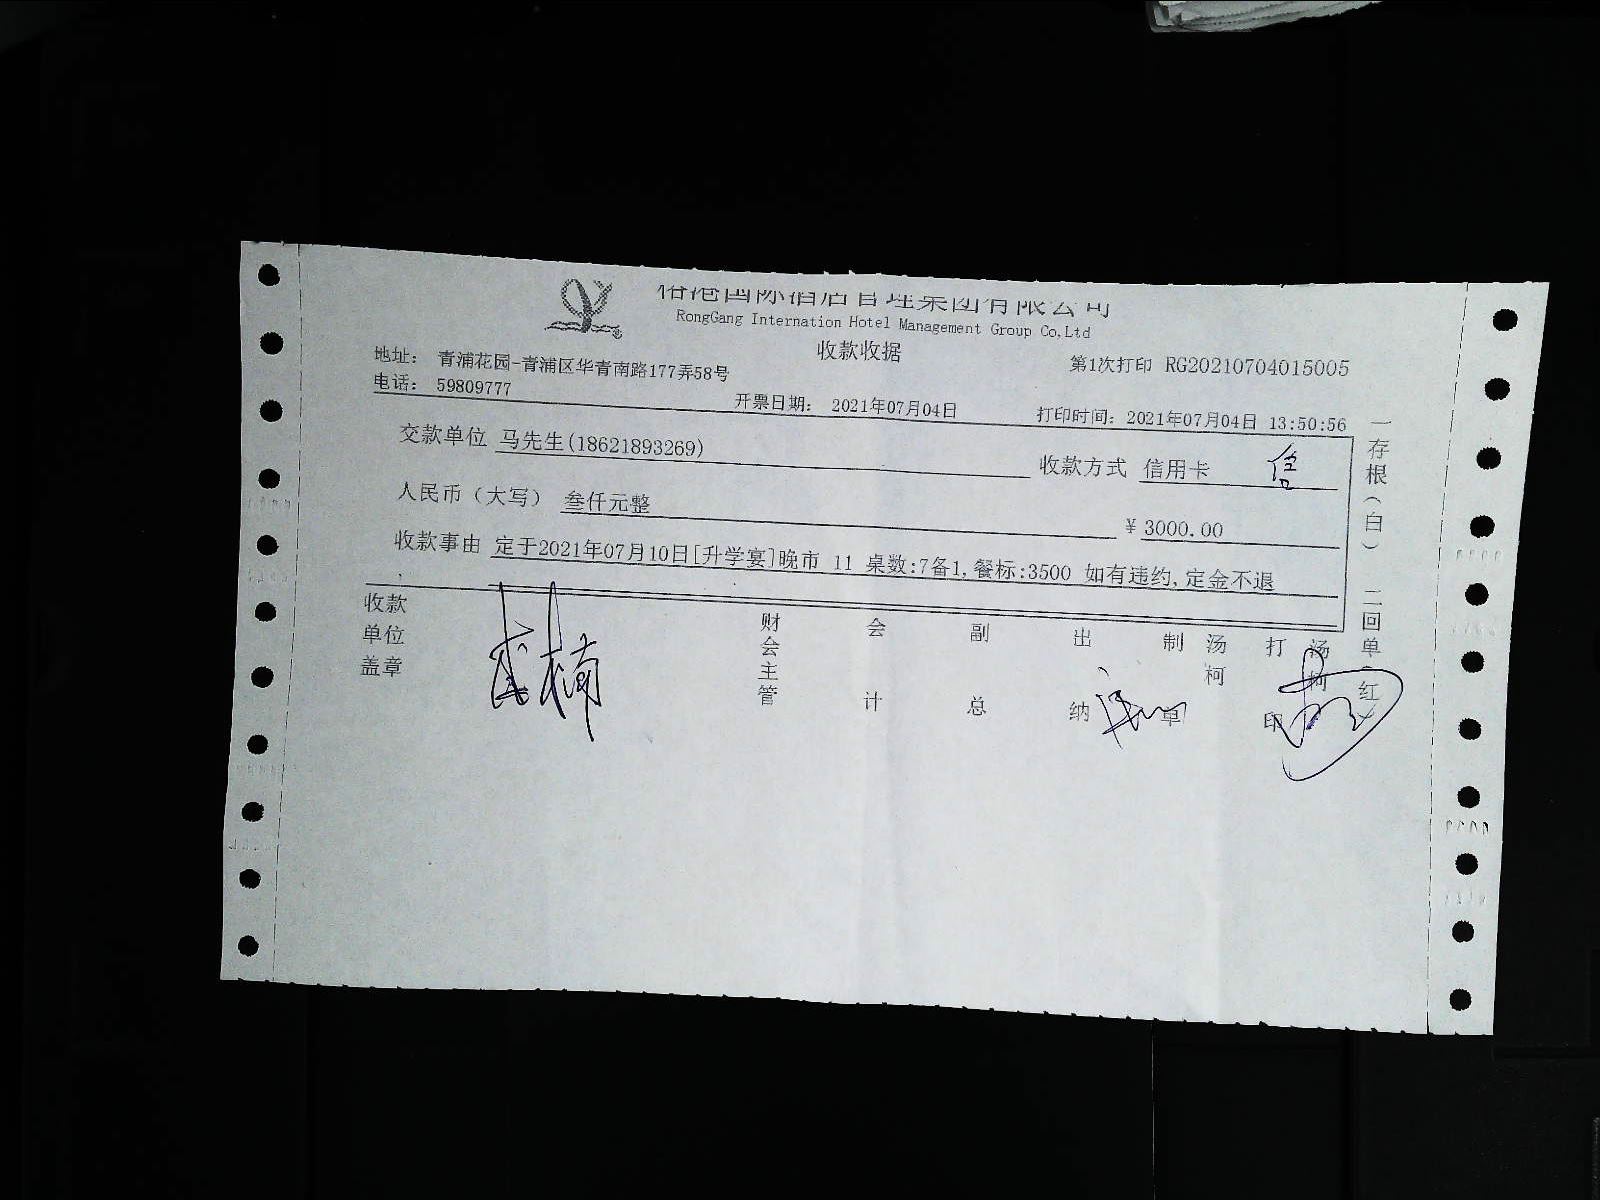 国际酒店管理集团有限公司
RongGang Internation Hotel Management Group Co,Ltd
收款收据
地址： 青浦花园-青浦区华青南路177弄58号
第1次打印 RG20210704015005
电话： 59809777
开票日期： 2021年07月04日
打印时间：2021年07月04日 13:50:56
交款单位 马先生(18621893269)
收款方式 信用卡 信
人民币（大写） 叁仟元整
¥ 3000.00
收款事由 定于2021年07月10日[升学宴]晚市 11 桌数:7备1,餐标:3500 如有违约,定金不退
收款单位盖章
财会主管
会计
副总
出纳
制单 汤柯
打印 汤柯
一存根(白) 二回单(红)